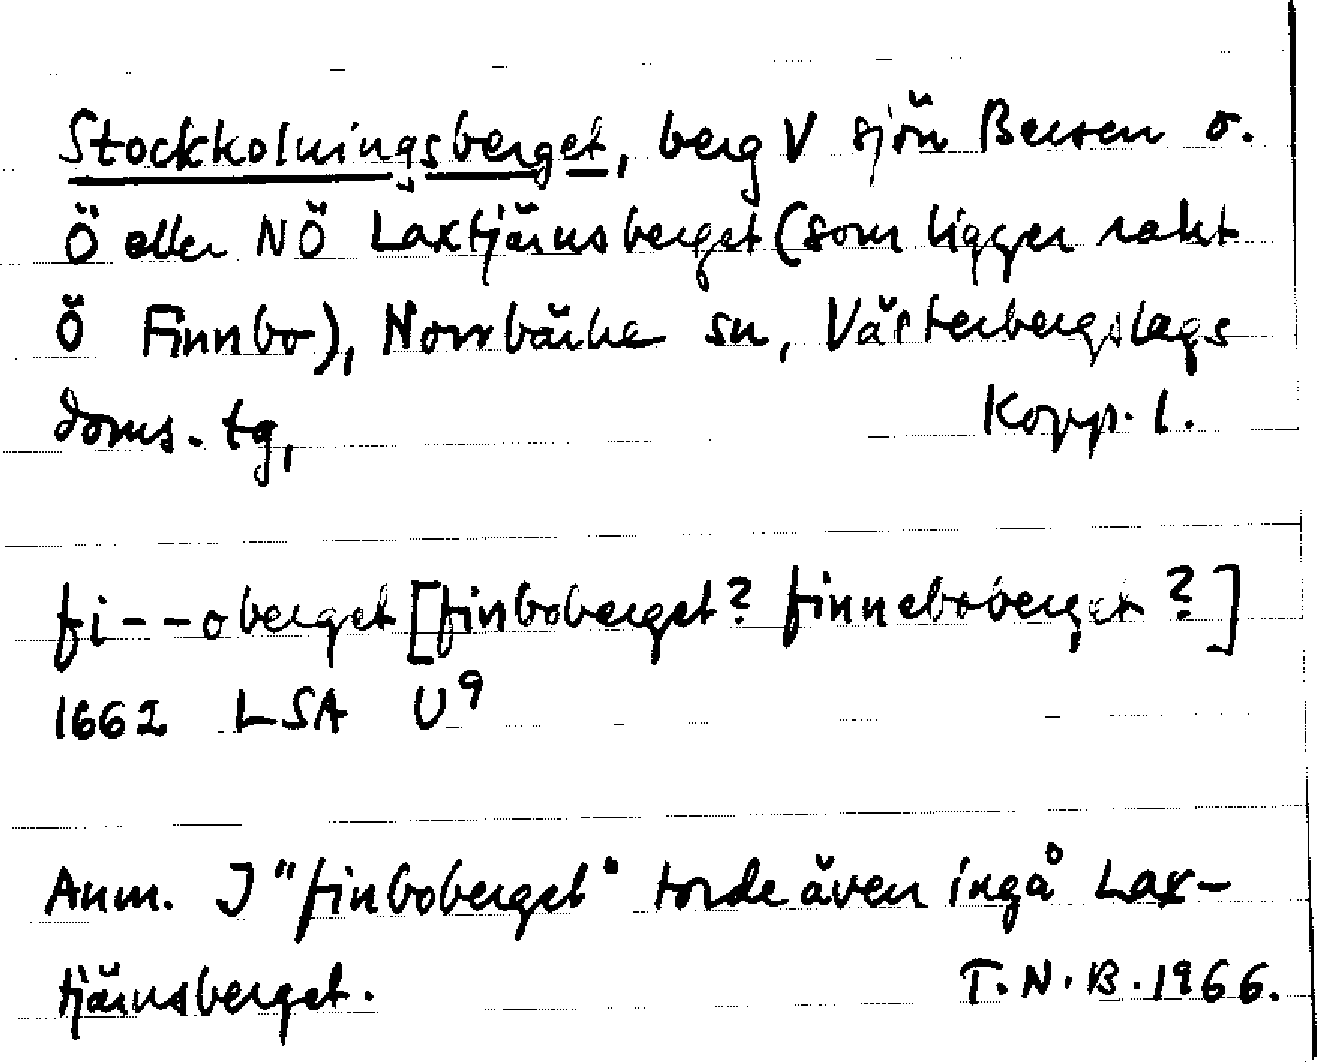 Stockkolningsberget, berg V sjön Bersen o.
Ö eller NÖ Laxtjärnsberget (som ligger rakt
Ö Finnbo), Norrbärke sn, Västerbergslags
doms. tg, Kopp. l.
fi--oberget [finboberget? finneboberget?]
1662 LSA U9
Anm. I "finboberget" torde även ingå Lax-
tjärnsberget. T.N.B. 1966.